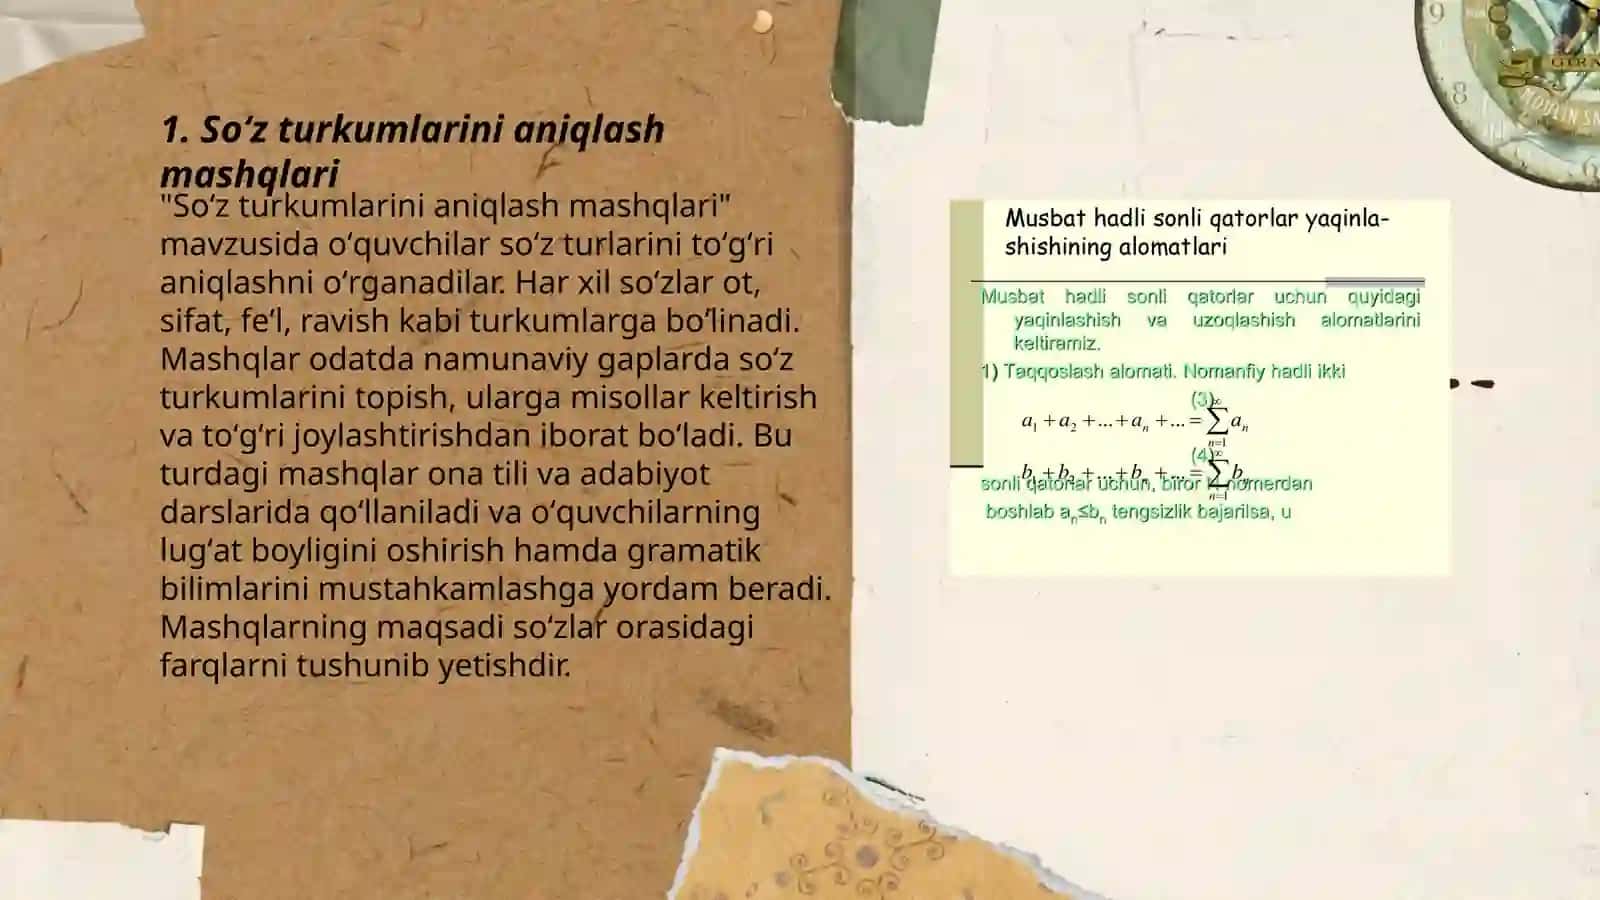 1. So‘z turkumlarini aniqlash
mashqlari
"So‘z turkumlarini aniqlash mashqlari"
mavzusida o‘quvchilar so‘z turlarini to‘g‘ri
aniqlashni o‘rganadilar. Har xil so‘zlar ot,
sifat, fe‘l, ravish kabi turkumlarga bo‘linadi.
Mashqlar odatda namunaviy gaplarda so‘z
turkumlarini topish, ularga misollar keltirish
va to‘g‘ri joylashtirishdan iborat bo‘ladi. Bu
turdagi mashqlar ona tili va adabiyot
darslarida qo‘llaniladi va o‘quvchilarning
lug‘at boyligini oshirish hamda gramatik
bilimlarini mustahkamlashga yordam beradi.
Mashqlarning maqsadi so‘zlar orasidagi
farqlarni tushunib yetishdir.
Musbat hadli sonli qatorlar yaqinla-
shishining alomatlari
Musbat hadli sonli qatorlar uchun quyidagi
yaqinlashish va uzoqlashish alomatlarini
keltiramiz.
1) Taqqoslash alomati. Nomanfiy hadli ikki
(3)
a₁ + a₂ + ... + aₙ + ... = ∑ aₙ
n=1
(4)
b₁ + b₂ + ... + bₙ + ... = ∑ bₙ
n=1
sonli qatorlar uchun, biror N nomerdan
boshlab aₙ≤bₙ tengsizlik bajarilsa, u
9
8
6
MOULIN